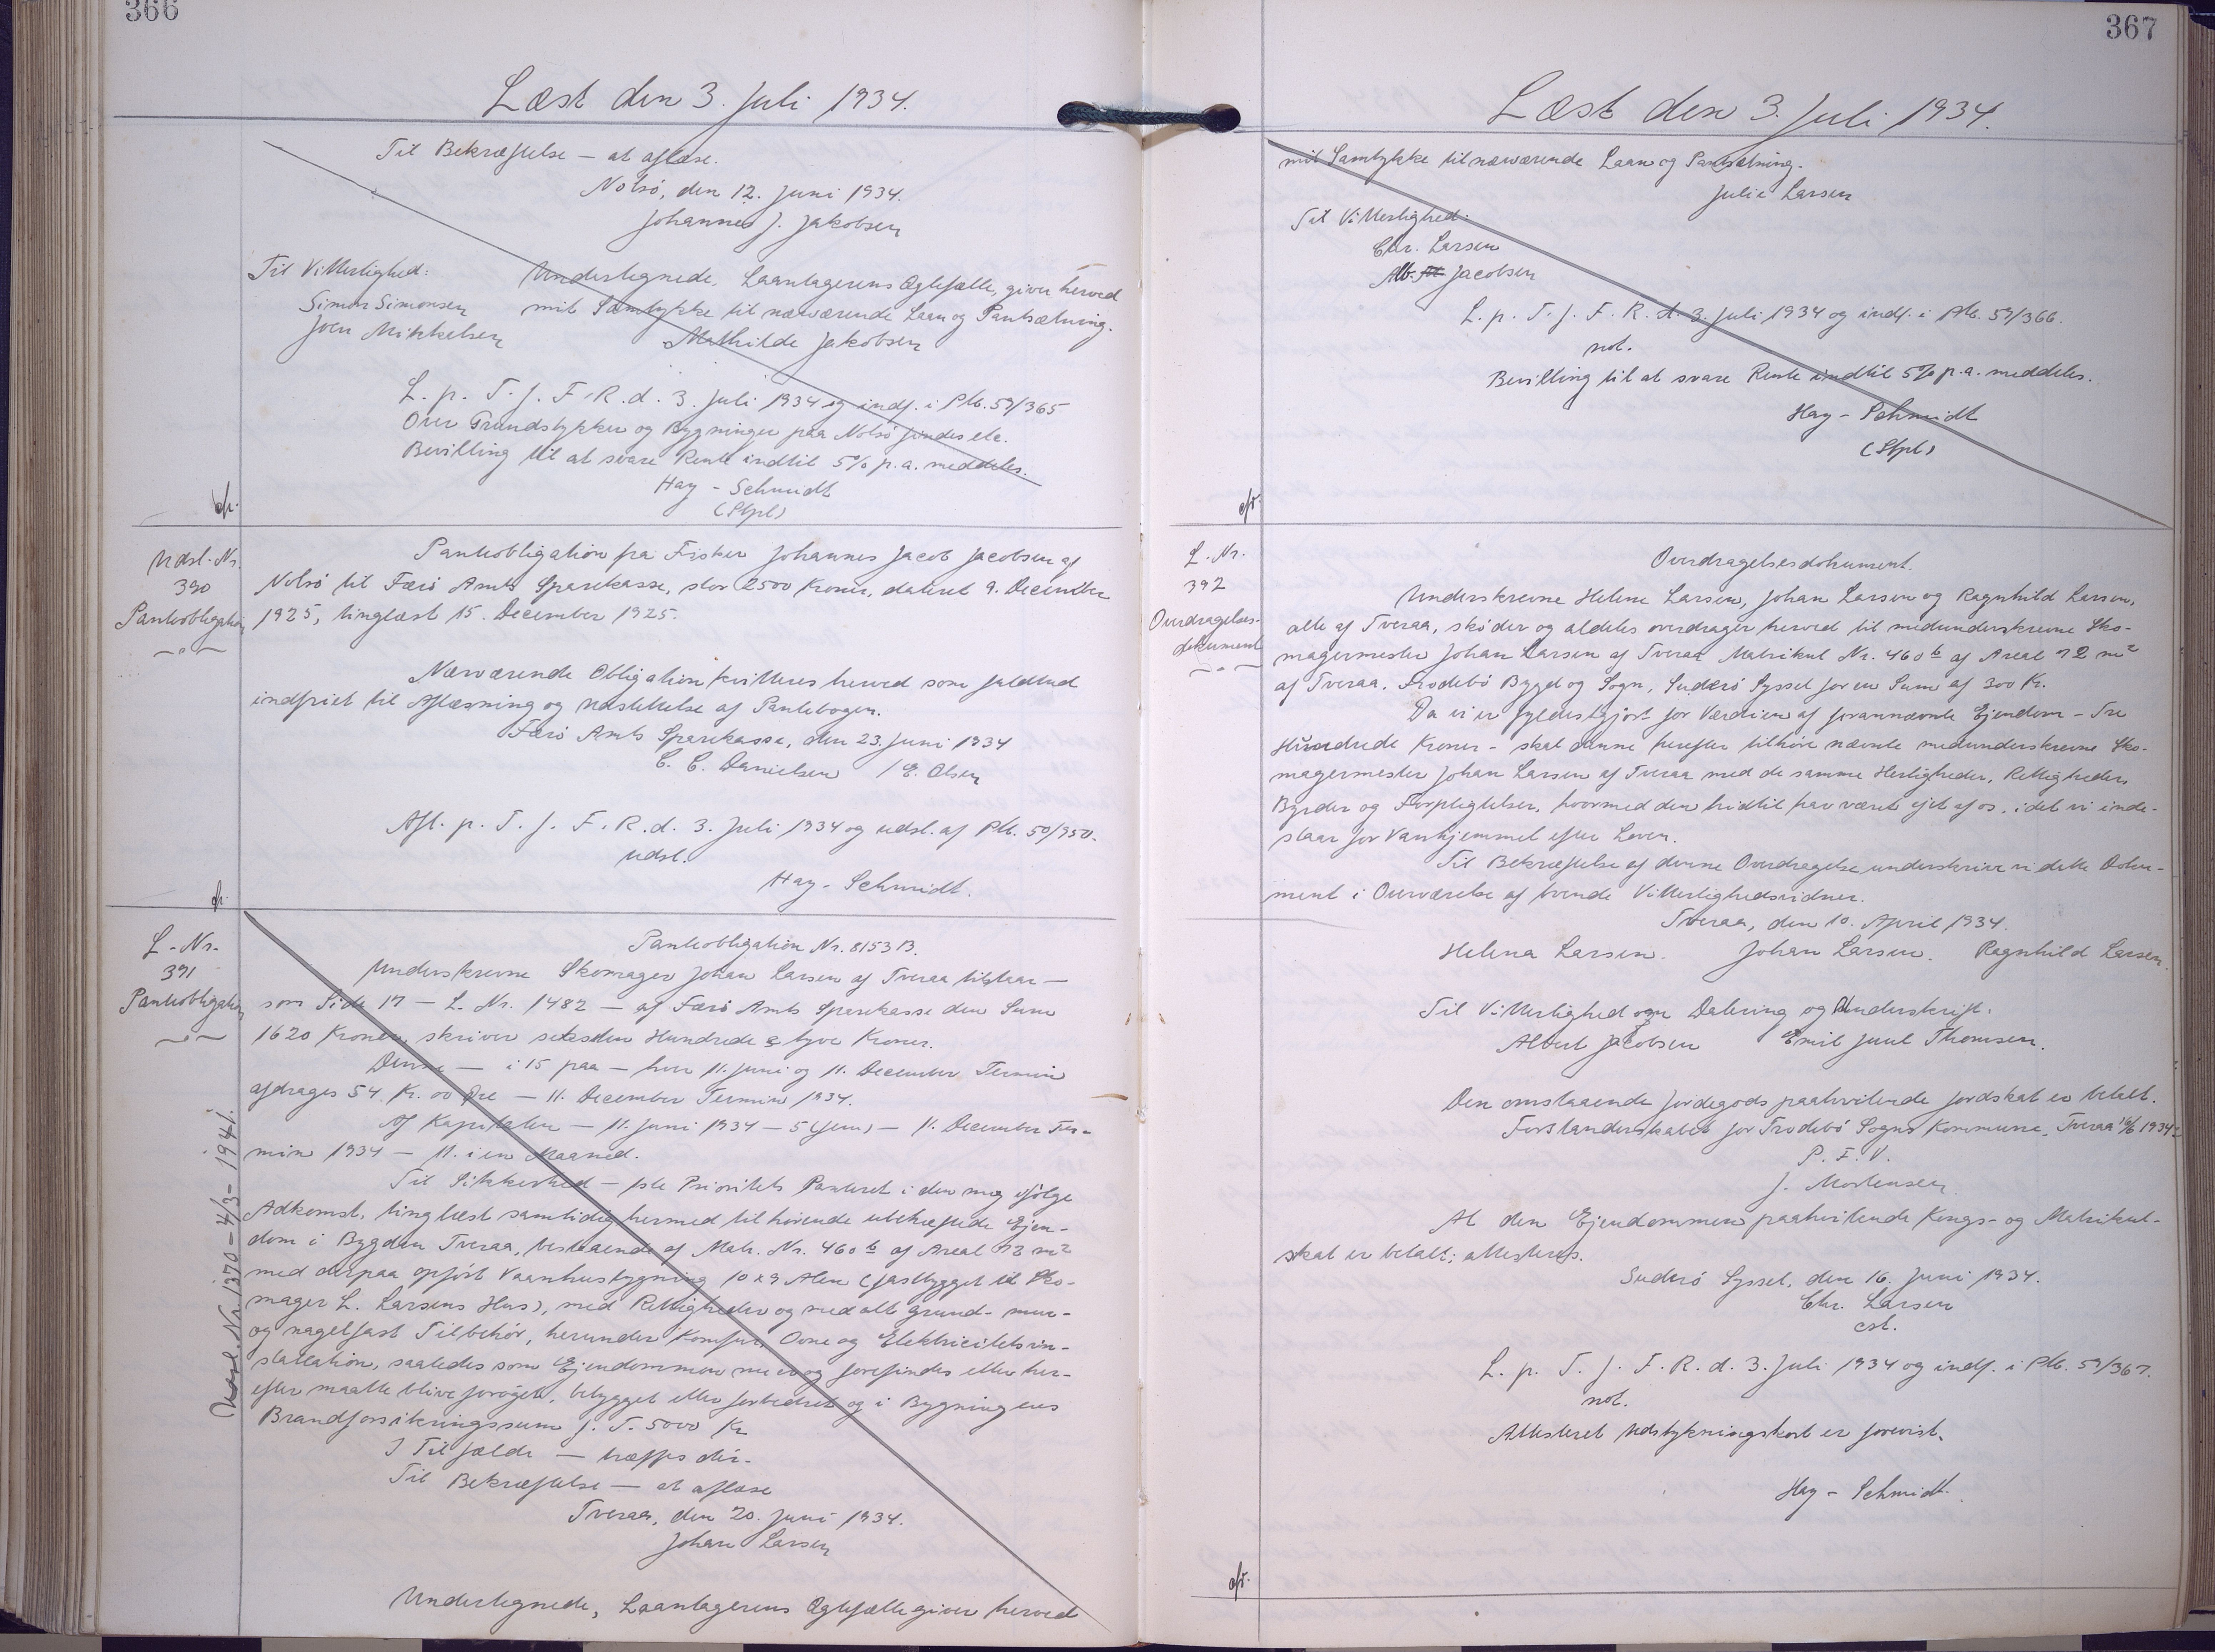 366
Læst den 3. Juli 1934.
Til Bekræftelse — at aflæse.
Nolsö, den 12. Juni 1934.
Johannes J. Jakobsen
Til Vitterlighed:
Simon Simonsen
Joen Mikkelsen
Undertegnede, Laantagerens Ægtefælle, giver herved
mit Samtykke til nærværende Laan og Pantsætning.
Mathilde Jakobsen
L. p. T. f. F. R. d. 3. Juli 1934 og indf. i Ptb. 59/365
Over Grundstykker og Bygninger paa Nolsö findes etc.
Bevilling til at svare Rente indtil 5% p. a. meddeles.
Hay - Schmidt
(Stpl)
Udsl. Nr.
390
Panteobligation
Panteobligation fra Fisker Johannes Jacob Jacobsen af
Nolsö til Færö Amts Sparekasse, stor 2500 Kroner, dateret 9. December
1925, tinglæst 15. December 1925.
Nærværende Obligation kvitteres herved som fuldtud
indfriet til Aflæsning og Udslettelse af Pantebogen.
Færö Amts Sparekasse, den 23. Juni 1934
C. C. Danielsen / E. Olsen
Afl. p. T. f. F. R. d. 3. Juli 1934 og udsl. af Ptb. 50/950.
udsl.
Hay - Schmidt.
L. Nr.
391
Panteobligation
Udsl. Nr. 1370 - 4/3 - 1941.
Panteobligation Nr. 8153 B.
Underskrevne Skomager Johan Larsen af Tveraa tilstaar —
som Side 17 — L. Nr. 1482 — af Færö Amts Sparekasse den Sum
1620 Kroner skriver seksten Hundrede & tyve Kroner.
Denne — i 15 paa — hver 11. Juni og 11. December Termin
afdrages 54 Kr. 00 Øre — 11. December Termin 1934.
Af Kapitalen — 11. Juni 1934 — 5 (fem) — 11. December Ter-
min 1934 — 11. i en Maaned.
Til Sikkerhed — 1ste Prioritets Panteret i den mig ifölge
Adkomst, tinglæst samtidig hermed tilhörende ubehæftede Ejen-
dom i Bygden Tveraa, bestaaende af Matr. Nr. 460 b af Areal 72 m²
med derpaa opfört Vaanhusbygning 10 x 9 Alen (fastbygget til Sko-
mager L. Larsens Hus), med Rettigheder og med alt grund- mur-
og nagelfast Tilbehör, herunder Komfur, Ovne og Elektricitetsin-
stallation, saaledes som Ejendommen nu er og forefindes eller her-
efter maatte blive foröget, bebygget eller forbedret og i Bygningens
Brandforsikringssum f. T. 5000 Kr
I Tilfælde — træffes dér.
Til Bekræftelse — at aflæse
Tveraa, den 20. Juni 1934.
Johan Larsen
Undertegnede, Laantagerens Ægtefælle giver herved
367
Læst den 3. Juli 1934.
mit Samtykke til nærværende Laan og Pantsætning.
Julie Larsen
Til Vitterlighed:
Chr. Larsen
Alb. Jacobsen
L. p. T. f. F. R. d. 3. Juli 1934 og indf. i Ptb. 59/366.
not.
Bevilling til at svare Rente indtil 5% p. a. meddeles.
Hay - Schmidt
(Stpl)
L. Nr.
392
Overdragelses-
dokument
Overdragelsesdokument.
Underskrevne Helene Larsen, Johan Larsen og Ragnhild Larsen,
alle af Tveraa, sköder og aldeles overdrager herved til medunderskrevne Sko-
magermester Johan Larsen af Tveraa Matrikul Nr. 460 b af Areal 72 m²
af Tveraa, Frodebö Bygd og Sogn, Suderö Syssel for en Sum af 300 Kr.
Da vi er fyldestgjort for Værdien af forannævnte Ejendom - Tre
Hundrede Kroner - skal denne herefter tilhöre nævnte medunderskrevne Sko-
magermester Johan Larsen af Tveraa med de samme Herligheder, Rettigheder,
Byrder og Forpligtelser, hvormed den hidtil har været ejet af os, idet vi inde-
staar for Vanhjemmel efter Loven.
Til Bekræftelse af denne Overdragelse underskriver vi dette Doku-
ment i Overværelse af tvende Vitterlighedsvidner.
Tveraa, den 10. April 1934.
Helena Larsen. Johan Larsen. Ragnhild Larsen.
Til Vitterlighed om Datering og Underskrift.
Albert Jacobsen Emil Juul Thomsen.
Den omstaaende Jordegods paahvilende Jordskat er betalt.
Forstanderskabet for Frodebö Sogns Kommune, Tveraa 16/6 1934
P. F. V.
J. Mortensen
At den Ejendommen paahvilende Kongs- og Matrikul-
skat er betalt; attesteres.
Suderö Syssel, den 16. Juni 1934.
Chr. Larsen
cst.
L. p. T. f. F. R. d. 3. Juli 1934 og indf. i Ptb. 59/367.
not.
Attesteret Udstykningskort er forevist.
Hay - Schmidt.